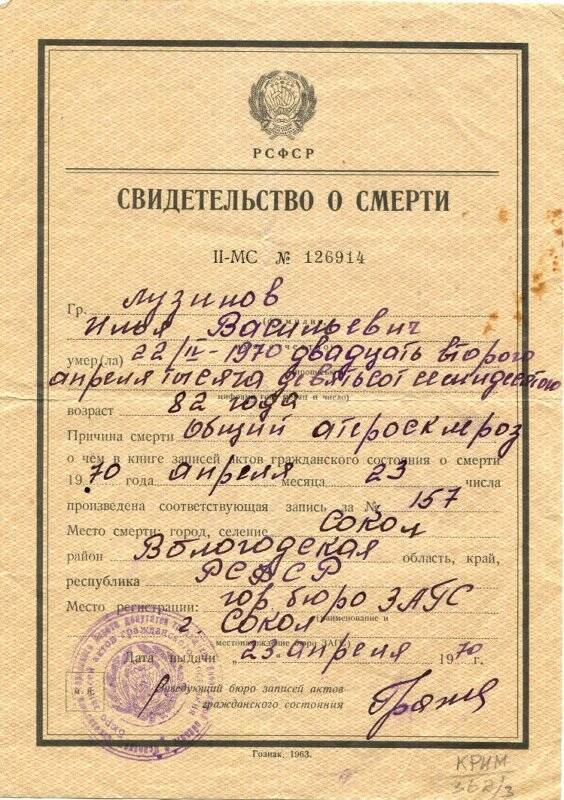 РСФСР
СВИДЕТЕЛЬСТВО О СМЕРТИ
II-МС № 126914
Гр. Лузинов
Илья Васильевич
умер(ла) 22/IV-1970 двадцать второго
апреля тысяча девятьсот семидесятого
цифрами и число)
возраст 82 года
Причина смерти Общий атеросклероз
о чем в книге записей актов гражданского состояния о смерти
1970 года апреля месяца 23 числа
произведена соответствующая запись за № 157
Место смерти: город, селение Сокол
район Вологодская область, край,
республика РСФСР
Место регистрации: гор. бюро ЗАГС
(наименование и
г. Сокол
местонахождение бюро ЗАГС
Дата выдачи „23 апреля 1970 г.
М. П.
Заведующий бюро записей актов
гражданского состояния
Гознак, 1963.
КРИМ
362/3